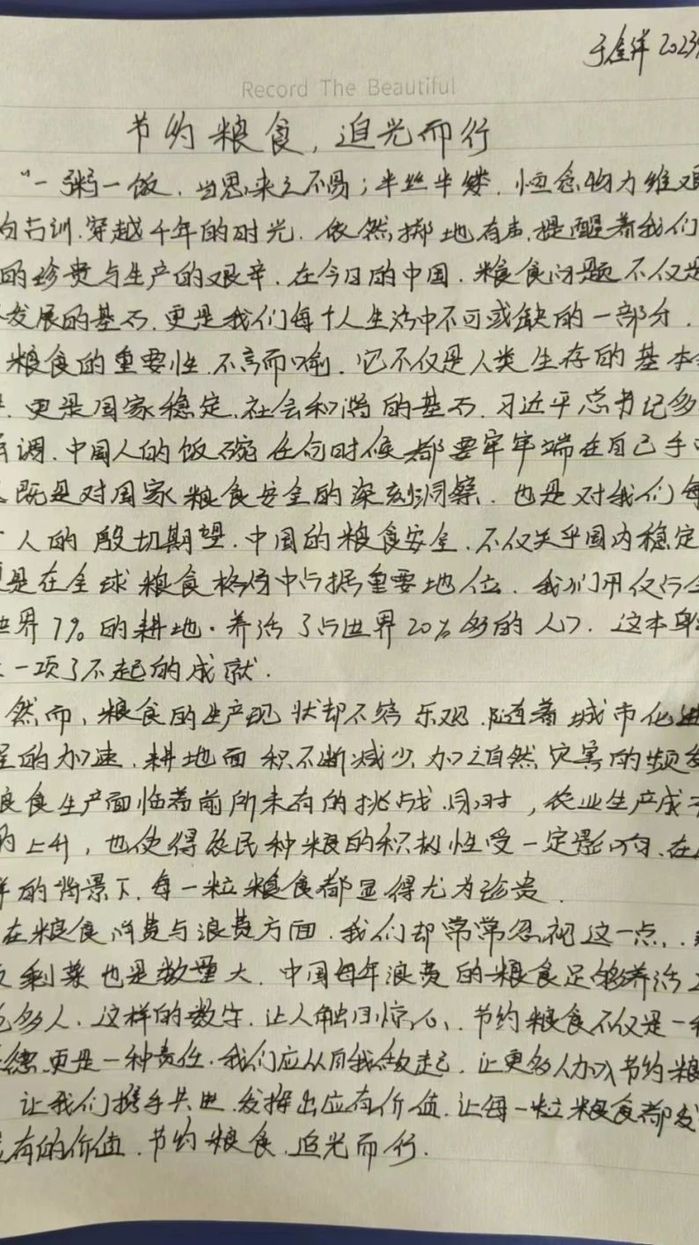 于金洋 2023
Record The Beautiful
节约粮食，追光而行
“一粥一饭，当思来之不易；半丝半缕，恒念物力维艰
的古训，穿越千年的时光，依然掷地有声，提醒着我们
的珍贵与生产的艰辛，在今日的中国，粮食问题不仅是
发展的基石，更是我们每个人生活中不可或缺的一部分，
粮食的重要性，不言而喻，它不仅是人类生存的基本
更是国家稳定、社会和谐的基石，习近平总书记多
调，中国人的饭碗任何时候都要牢牢端在自己手
既是对国家粮食安全的深刻洞察，也是对我们每
个人的殷切期望，中国的粮食安全，不仅关乎国内稳定
是在全球粮食格局中占据重要地位，我们用仅占全
世界7%的耕地，养活了占世界20%多的人口，这本身
一项了不起的成就．
然而，粮食的生产现状却不容乐观，随着城市化进
程的加速，耕地面积不断减少，加之自然灾害的频发
粮食生产面临着前所未有的挑战，同时，农业生产成本
的上升，也使得农民种粮的积极性受一定影响，在
样的背景下，每一粒粮食都显得尤为珍贵．
在粮食消费与浪费方面，我们却常常忽视这一点，
剩菜也是数量大，中国每年浪费的粮食足够养活
多人，这样的数字，让人触目惊心，节约粮食不仅是一种
德，更是一种责任，我们应从自我做起，让更多人加入节约粮
让我们携手共进，发挥出应有价值，让每一粒粮食都发
有的价值，节约粮食，追光而行．